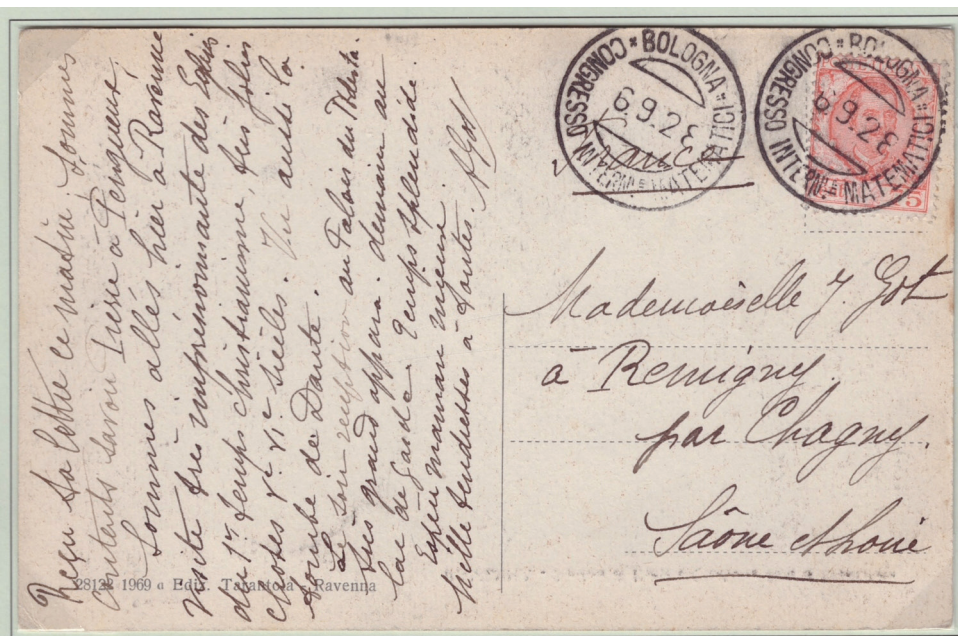 Reçu ta lettre ce matin, sommes
Contents savoir Pierre à Perigueux,
Sommes allés hier à Ravenne
visite très impressionnante des Eglises
du 1er temps christianisme, très jolies
choses Ve VIe siècles. Vu aussi la
tombe de Dante.
Ce soir reception au Palais du Podesta
très grand apparat. demain au
lac de Garde. Temps splendide.
maman
Mille tendresses à toutes. AGot
28122 1969 a Ediz. Tarantola - Ravenna
CONGRESSO INTERN.LE MATEMATICI * BOLOGNA *
6.9.28
CONGRESSO INTERN.LE MATEMATICI * BOLOGNA *
6.9.28
Mademoiselle J. Got
à Remigny
par Chagny.
Saône et Loire